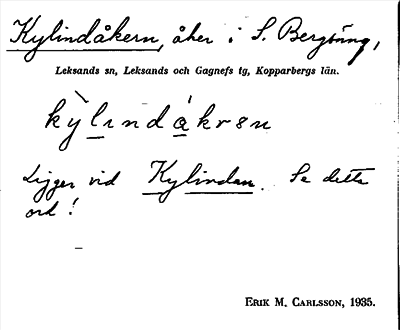 Kylindåkern, åker i S. Bergsäng,
Leksands sn, Leksands och Gagnefs tg, Kopparbergs län.
kỳlındákrɛn
Ligger vid Kylindan. Se detta
ord!
ERIK M. CARLSSON, 1935.